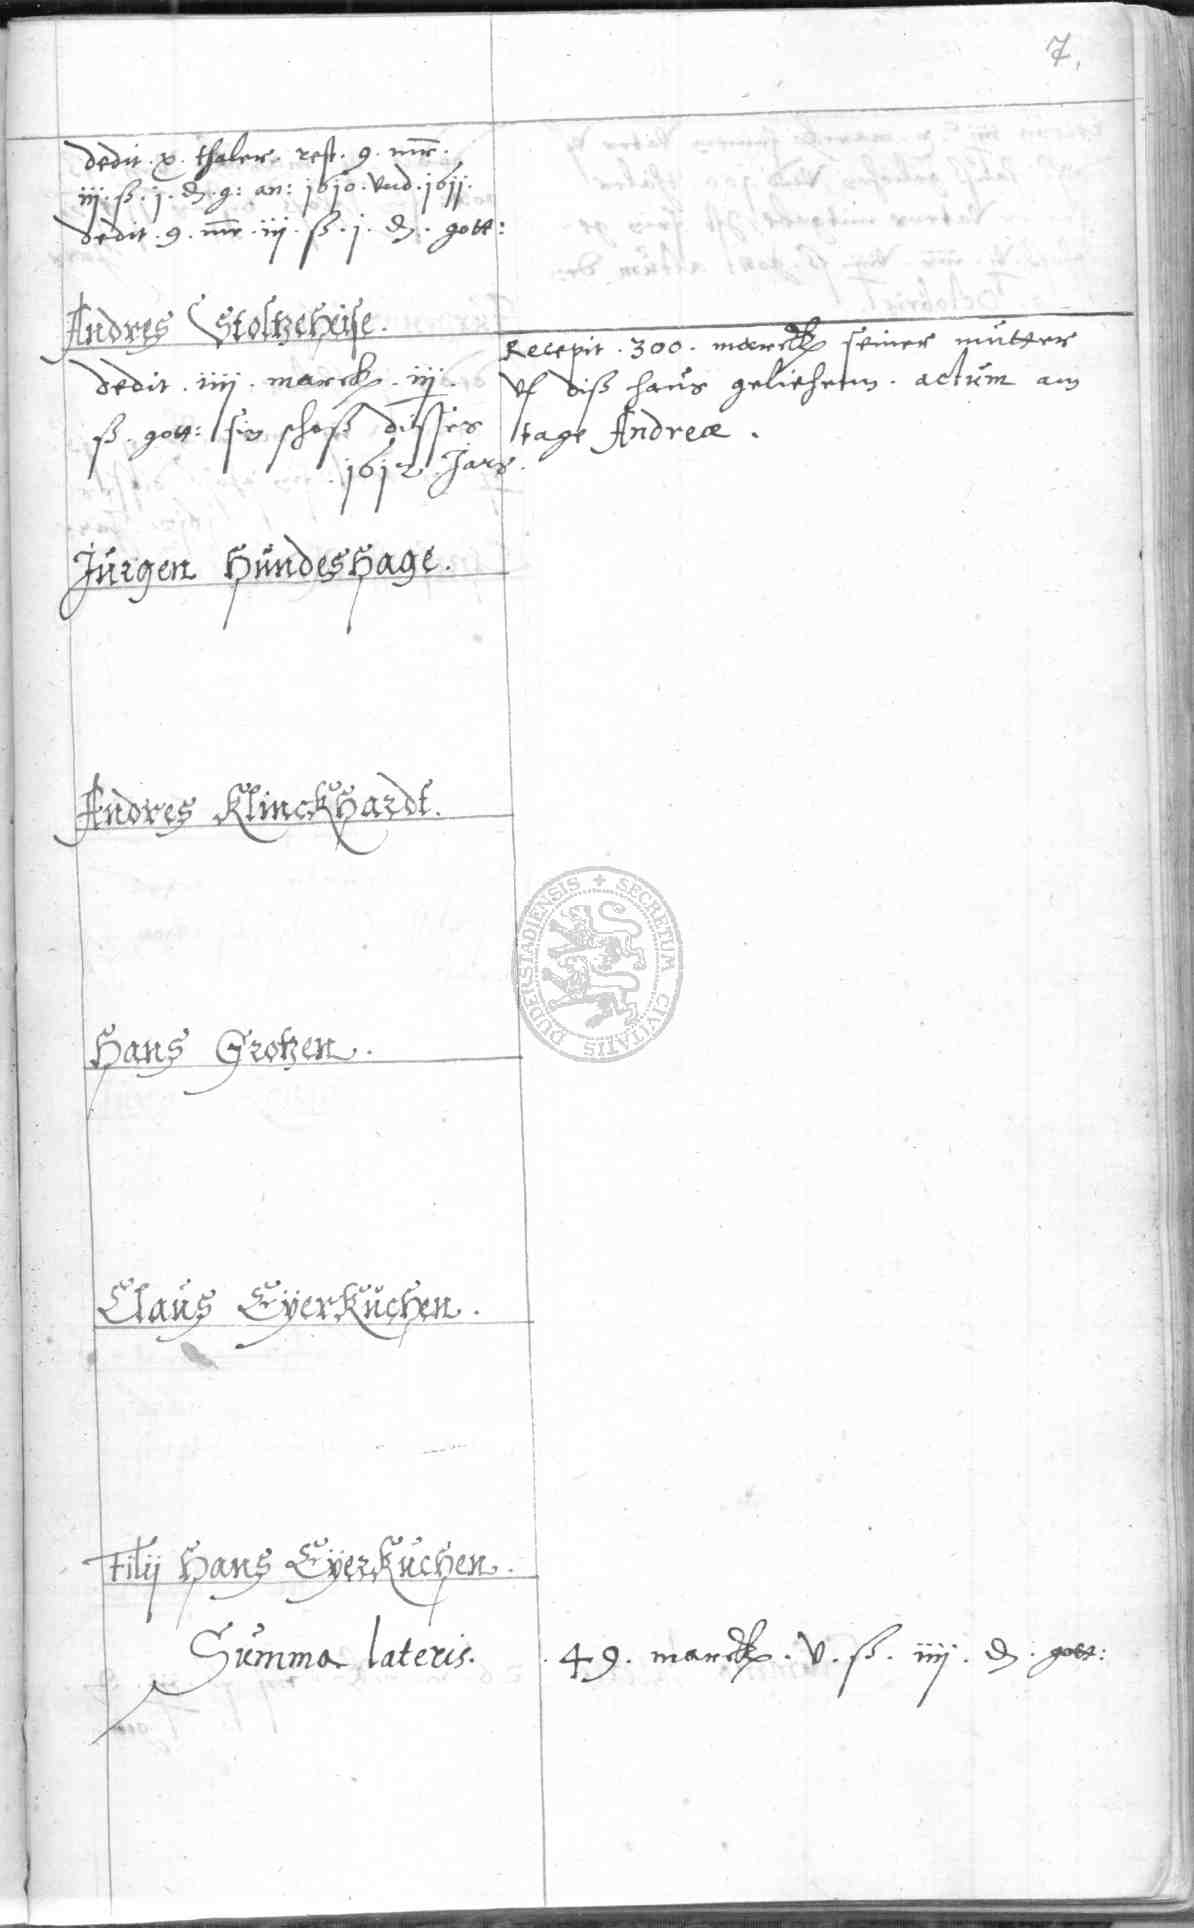 7.
dedit . x . thaler . rest . 9 . mr .
iij . ß . j . ₰ . g : an : 1610 . vnd . 1611 .
dedit . 9 . mr . iij . ß . j . ₰ . gott :
Andres Stoltzeheise .
Recepit . 300 . marck seiner mutter
vf diß haus geliehenn . actum am
tage Andreæ .
dedit . iiij . marck . iij .
ß . gott : sin schoß disses
1612 . Jars .
Jürgen Hundeshage .
Andres Klinckhardt .
Hans Grotzen .
Claus Eÿerkuchen .
Filij Hans Eÿerkuchen .
Summa lateris . 49 . marck . v . ß . iiij . ₰ . gott :
SECRETUM CIVITATIS DUDERSTADIENSIS